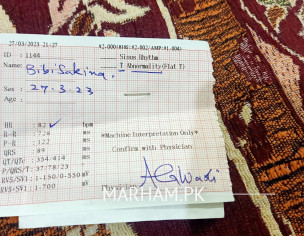 27/03/2023 21:27
ID : 1144
Name: Bibi Sakina.
Sex : 27.3.23
Age :
Sinus Rhythm
T Abnormality(Flat T)
HR : 82 ✓ bpm
R-R : 728 ms
P-R : 122 ms
QRS : 89 ms
QT/QTc : 354/414 ms
P/QRS/T: 37/78/23
RV5/SV1: 1-150/0-550 mV
RV5+SV1: 1-700 mV
*Machine Interpretation Only*
Confirm with Physician
MARHAM.PK